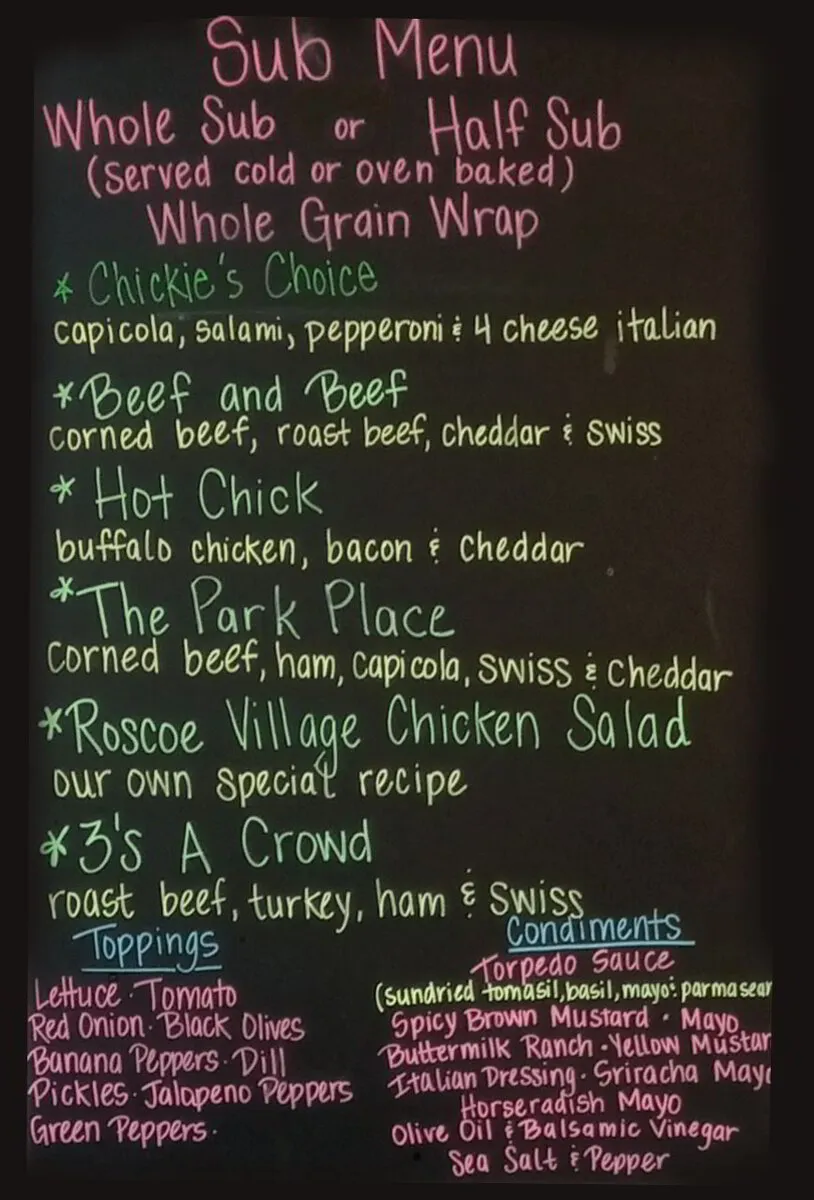 Sub Menu
Whole Sub or Half Sub
(served cold or oven baked)
Whole Grain Wrap
* Chickie's Choice
capicola, salami, pepperoni & 4 cheese italian
*Beef and Beef
corned beef, roast beef, cheddar & swiss
* Hot Chick
buffalo chicken, bacon & cheddar
*The Park Place
corned beef, ham, capicola, swiss & cheddar
*Roscoe Village Chicken Salad
our own special recipe
*3's A Crowd
roast beef, turkey, ham & swiss
Toppings
Lettuce · Tomato
Red Onion · Black Olives
Banana Peppers · Dill
Pickles · Jalapeno Peppers
Green Peppers ·
Condiments
Torpedo Sauce
(sundried tomasil, basil, mayo & parmasean
Spicy Brown Mustard · Mayo
Buttermilk Ranch · Yellow Mustar
Italian Dressing · Sriracha Mayo
Horseradish Mayo
Olive Oil & Balsamic Vinegar
Sea Salt & Pepper